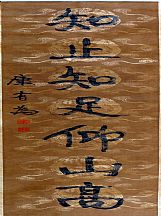 知止知足仰山高
康有為